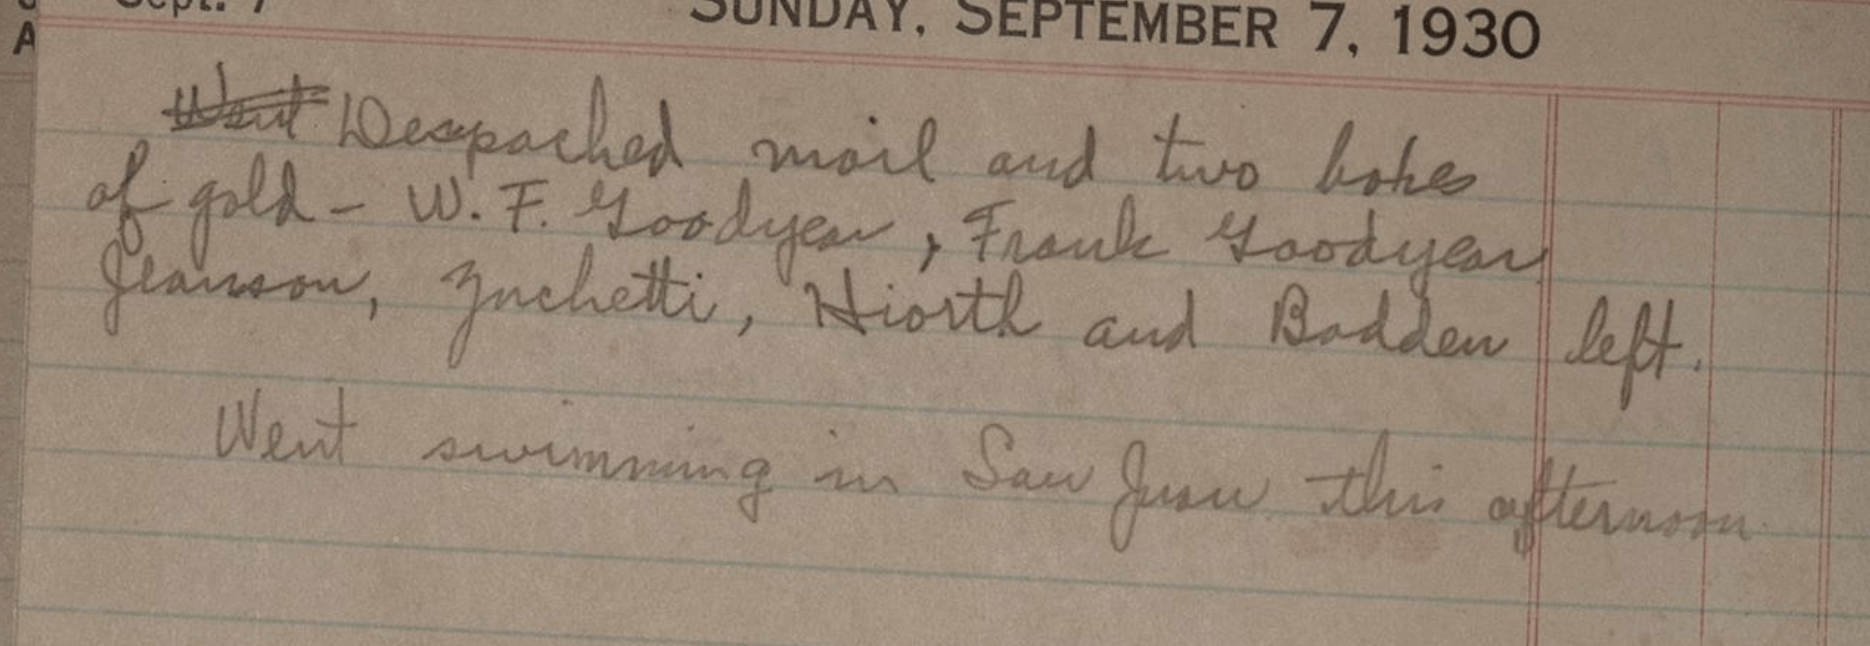 Sept. 7
SUNDAY, SEPTEMBER 7, 1930
A
Went Despached mail and two boxes
of gold - W. F. Goodyear, Frank Goodyear
Jeanson, Zuchetti, Hiorth and Bodden left.
Went swimming in San Juan this afternoon